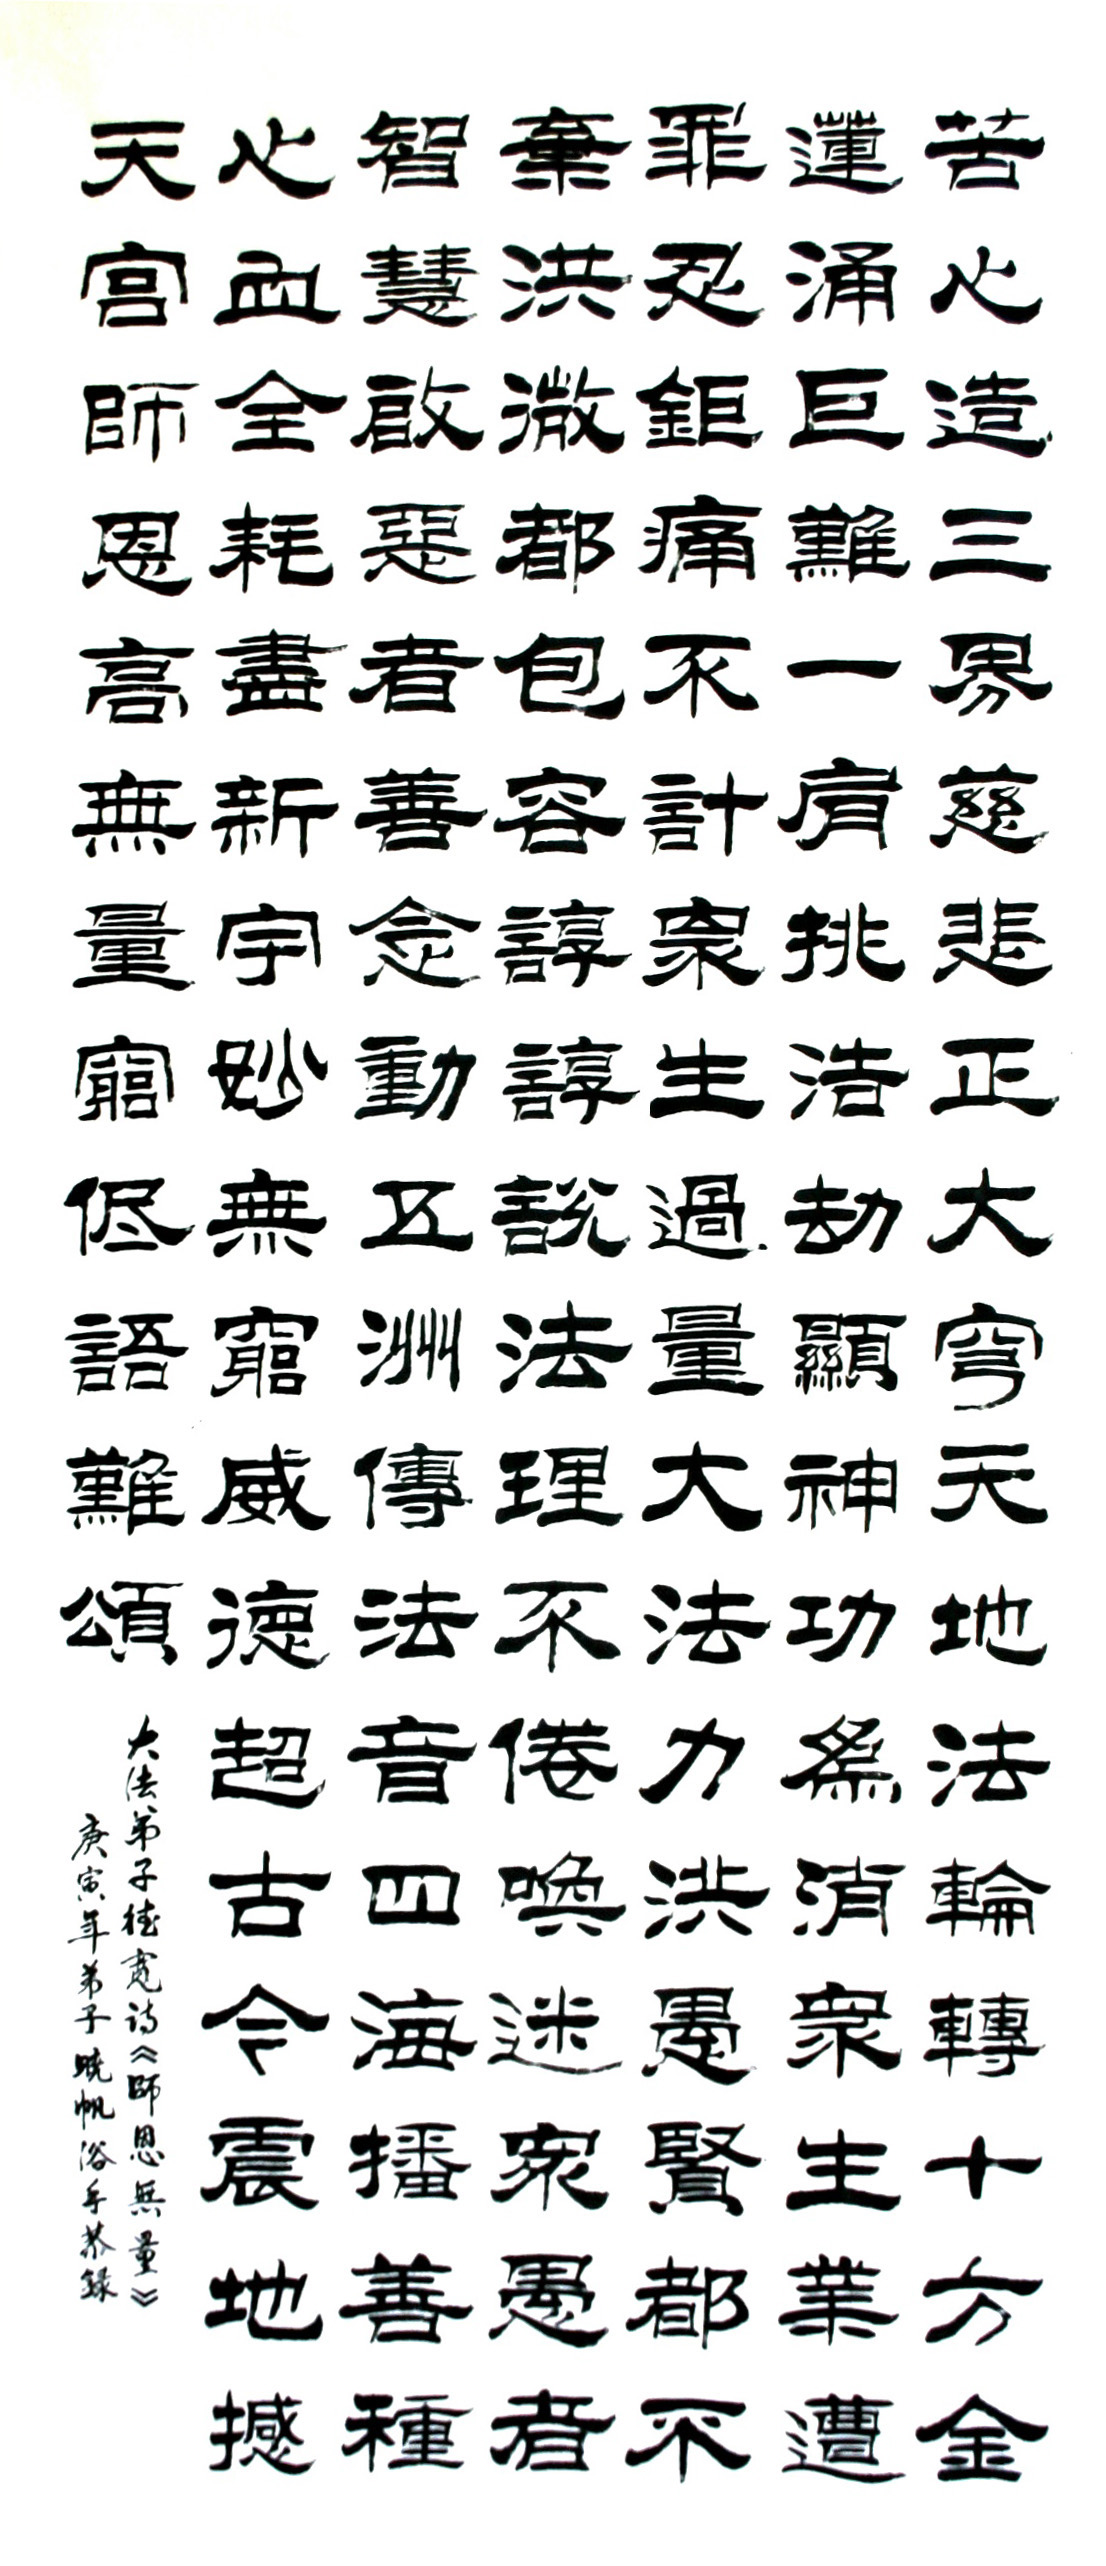 苦心造三界慈悲正大穹天地法輪轉十方金
蓮涌巨難一肩挑浩劫顯神功為消眾生業遭
罪忍鉅痛不計眾生過量大法力洪愚賢都不
棄洪微都包容諄諄說法理不倦喚迷眾愚者
智慧啟惡者善念動五洲傳法音四海播善種
心血全耗盡新宇妙無窮威德超古今震地撼
天宮師恩高無量窮低語難頌
大法弟子德寬诗《師恩無量》
庚寅年弟子曉帆浴手恭錄